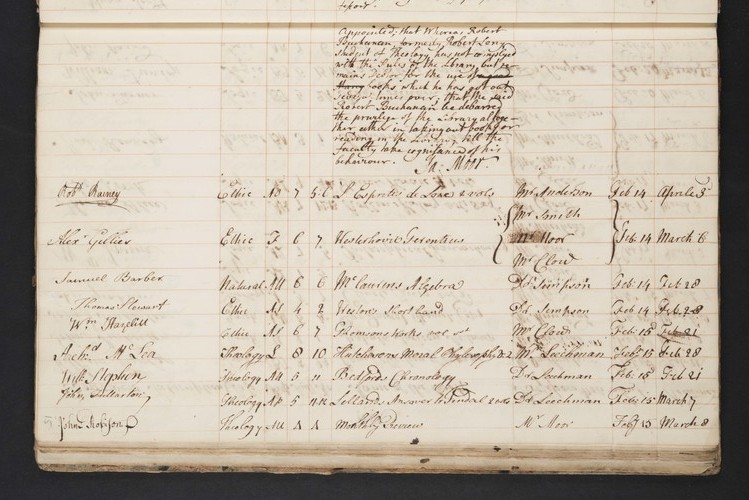 report.
Appointed, that Whereas Robert
Buchanan, formerly Robert Long
Student of Theology has not complyed
with the Rules of the Library, but re
mains Debtor for the use of
books which he has got out
several times over, that the said
Robert Buchanan be debarred
the privilege of the Library altoge
ther either in taking out books or
reading in the Library till the
Faculty take cognisance of his
behaviour.
Ja: Moor.
Robt Rainey Ethic AS 7 5.6 L'Esprit des Loix 2 vols Mr Anderson Feb 14 Aprile 3
Mr Smith
Alexr Gillies Ethic F 6 7. Westerhovii Terentius Mr Moor Feb. 14 March 6
Mr Clow
Samuel Barber Natural AH 6 6 McLaurens Algebra Dr Simpson Feb 14 Feb 28
Thomas Stewart Ethic AS 4 2 Westons Shorthand Dr Simpson Feb 14 Feb 28
Wm Hazlitt Ethic AS 6 7 Thomsons Works vol 1st Mr Clow Feb 15 Feb 21
Archd McLea Theology L 8 10 Hutchesons Moral Phylosophy Mr Leechman Feb 15 Feb 28
Willm Stephen Theology AH 5 11 Bedfords Chronology Dr Leechman Feb. 15 Feb 21
John Fullarton Theology 5 11.12 Lellands Answer to Tindal 2 vols Dr Leechman Feb 15 March 7
John Theology AH Monthly Review Mr Moor Feb 15 March 8